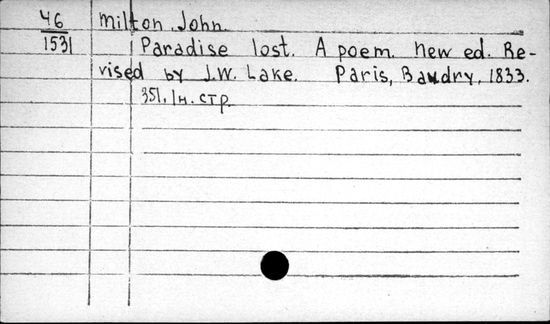 46 Milton John.
1531 Paradise lost. A poem. New ed. Re-
vised by J.W. Lake. Paris, Baudry, 1833.
351, 1н. стр.